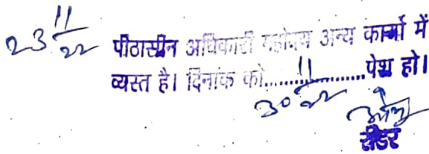 23 11/22
पीठासीन अधिकारी महोदय अन्य कार्यो में
व्यस्त है। दिनांक को..............पेश हो।
30 11/22
रीडर